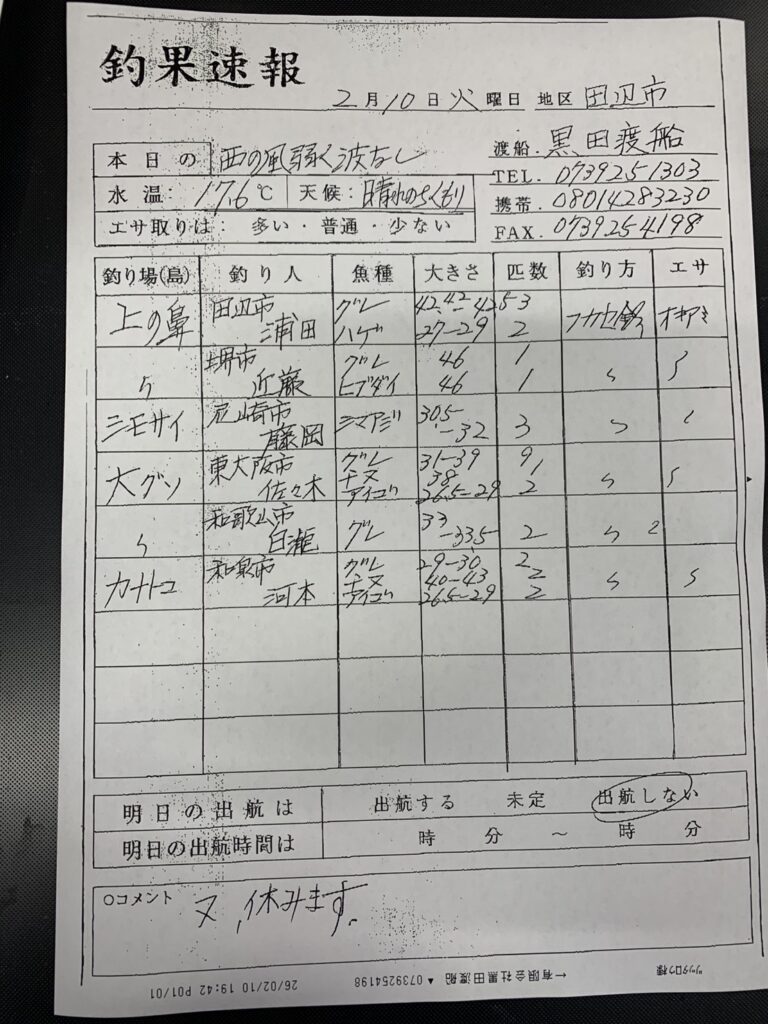 釣果速報
2月10日火曜日 地区 田辺市
渡船. 黒田渡船
TEL. 0739251303
携帯. 08014283230
FAX. 0739254198
本日の 西の風弱く波なし
水温: 17.6℃ 天候: 晴れのちくもり
エサ取りは: 多い・普通・少ない
釣り場(島) 釣り人 魚種 大きさ 匹数 釣り方 エサ
上の鼻 田辺市 グレ 42.42-42.5 3 フカセ釣 オキアミ
浦田 ハゲ 27-29 2
〃 堺市 グレ 46 1 〃 〃
近藤 ヒブダイ 46 1
シモサイ 尼崎市 シマアジ 30.5 3 〃 〃
藤岡 -32
大グソ 東大阪市 グレ 31-39 9 〃 〃
チヌ 38 1
佐々木 アイゴ 26.5-29 2
〃 和歌山市 グレ 33 2 〃 2
白瀧 -33.5
カナトコ 和泉市 グレ 29-30 2 〃 〃
チヌ 40-43 2
河本 アイゴ 26.5-29 2
明日の出航は 出航する 未定 出航しない
明日の出航時間は 時 分 ～ 時 分
○コメント
又,休みます.
ツッタロウ様
←有限会社黒田渡船 ▲ 0739254198
26/02/10 19:42 P01/01